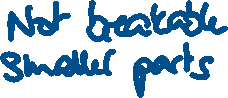 Not breakable
smaller parts